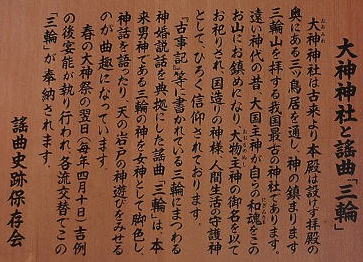 大神神社と謡曲「三輪」
大神神社は古来より本殿は設けず拝殿の
奥にある三ッ鳥居を通し、神の鎮まります
三輪山を拝する我国最古の神社であります。
遠い神代の昔、大国主神が自らの和魂をこの
お山にお鎮めになり、大物主神の御名を以て
お祀りされ、国造りの神様、人間生活の守護神
として、ひろく信仰されております。
『古事記』等に書かれている三輪にまつわる
神婚説話を典拠にした謡曲「三輪」は、本
来男神である三輪の神を女神として脚色し、
神話を語ったり、天の岩戸の神遊びをみせる
のが曲趣になっています。
春の大神祭の翌日(毎年四月十日)吉例
の後宴能が執り行われ、各流交替でこの
「三輪」が奉納されます。
謡曲史跡保存会